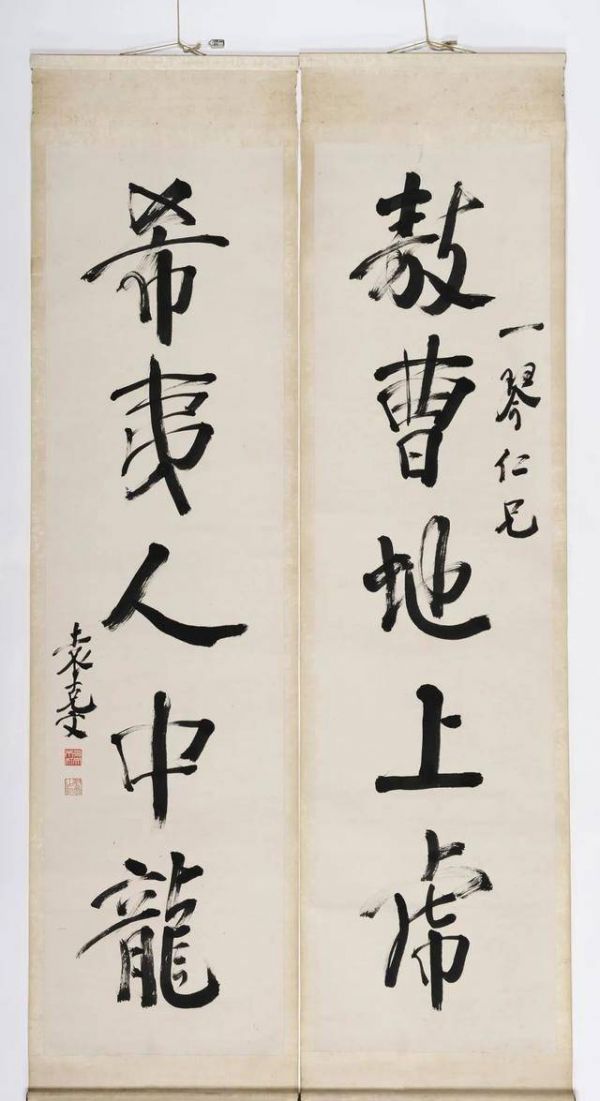 敖曹地上虎
一琴仁兄
希夷人中龍
袁克文